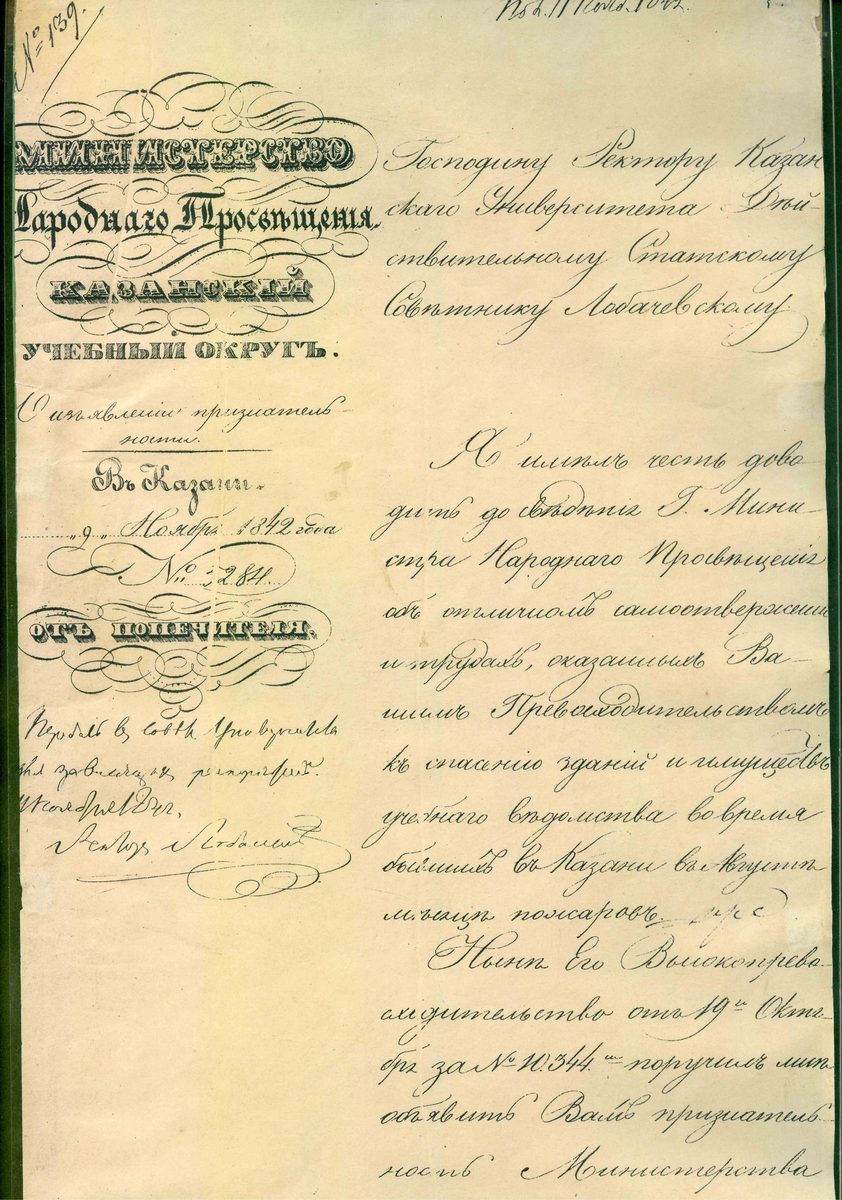 № 139.
Пол. 11 Нояб. 1842.
МИНИСТЕРСТВО
Народнаго Просвѣщенія.
КАЗАНСКІЙ
УЧЕБНЫЙ ОКРУГЪ.
О изъявленіи признатель-
ности.
Въ Казани.
„9„ Ноября 1842 года
№ 5284.
ОТЪ ПОПЕЧИТЕЛЯ.
Ректоръ Лобачевскій
Господину Ректору Казан
скаго Университета Дѣй-
ствительному Статскому
Совѣтнику Лобачевскому
Я имѣлъ честь дово
дить до свѣдѣнія Г. Мини-
стра Народнаго Просвѣщенія
объ отличномъ самоотвержении
и трудахъ, оказанныхъ Ва-
шимъ Превосходительствомъ
къ спасенію зданій и имуществъ
учебнаго вѣдомства во время
бывшихъ въ Казани въ Августѣ
мѣсяцѣ пожаровъ.
Нынѣ Его Высокопрево-
сходительство отъ 19го Октя-
бря за № 10.344.мъ поручилъ мнѣ
объявить Вамъ признатель-
ность Министерства